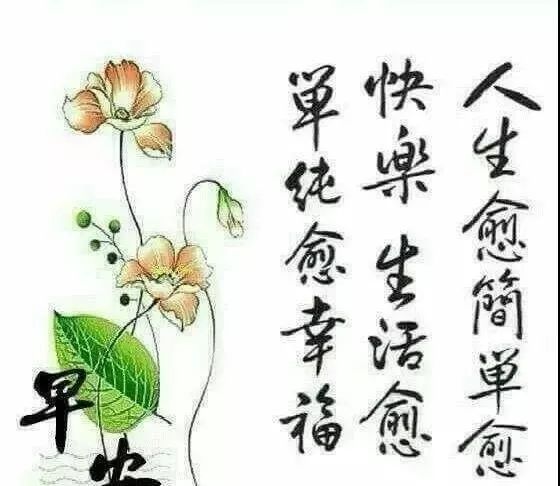 人生愈簡單愈
快樂 生活愈
單純愈幸福
早安